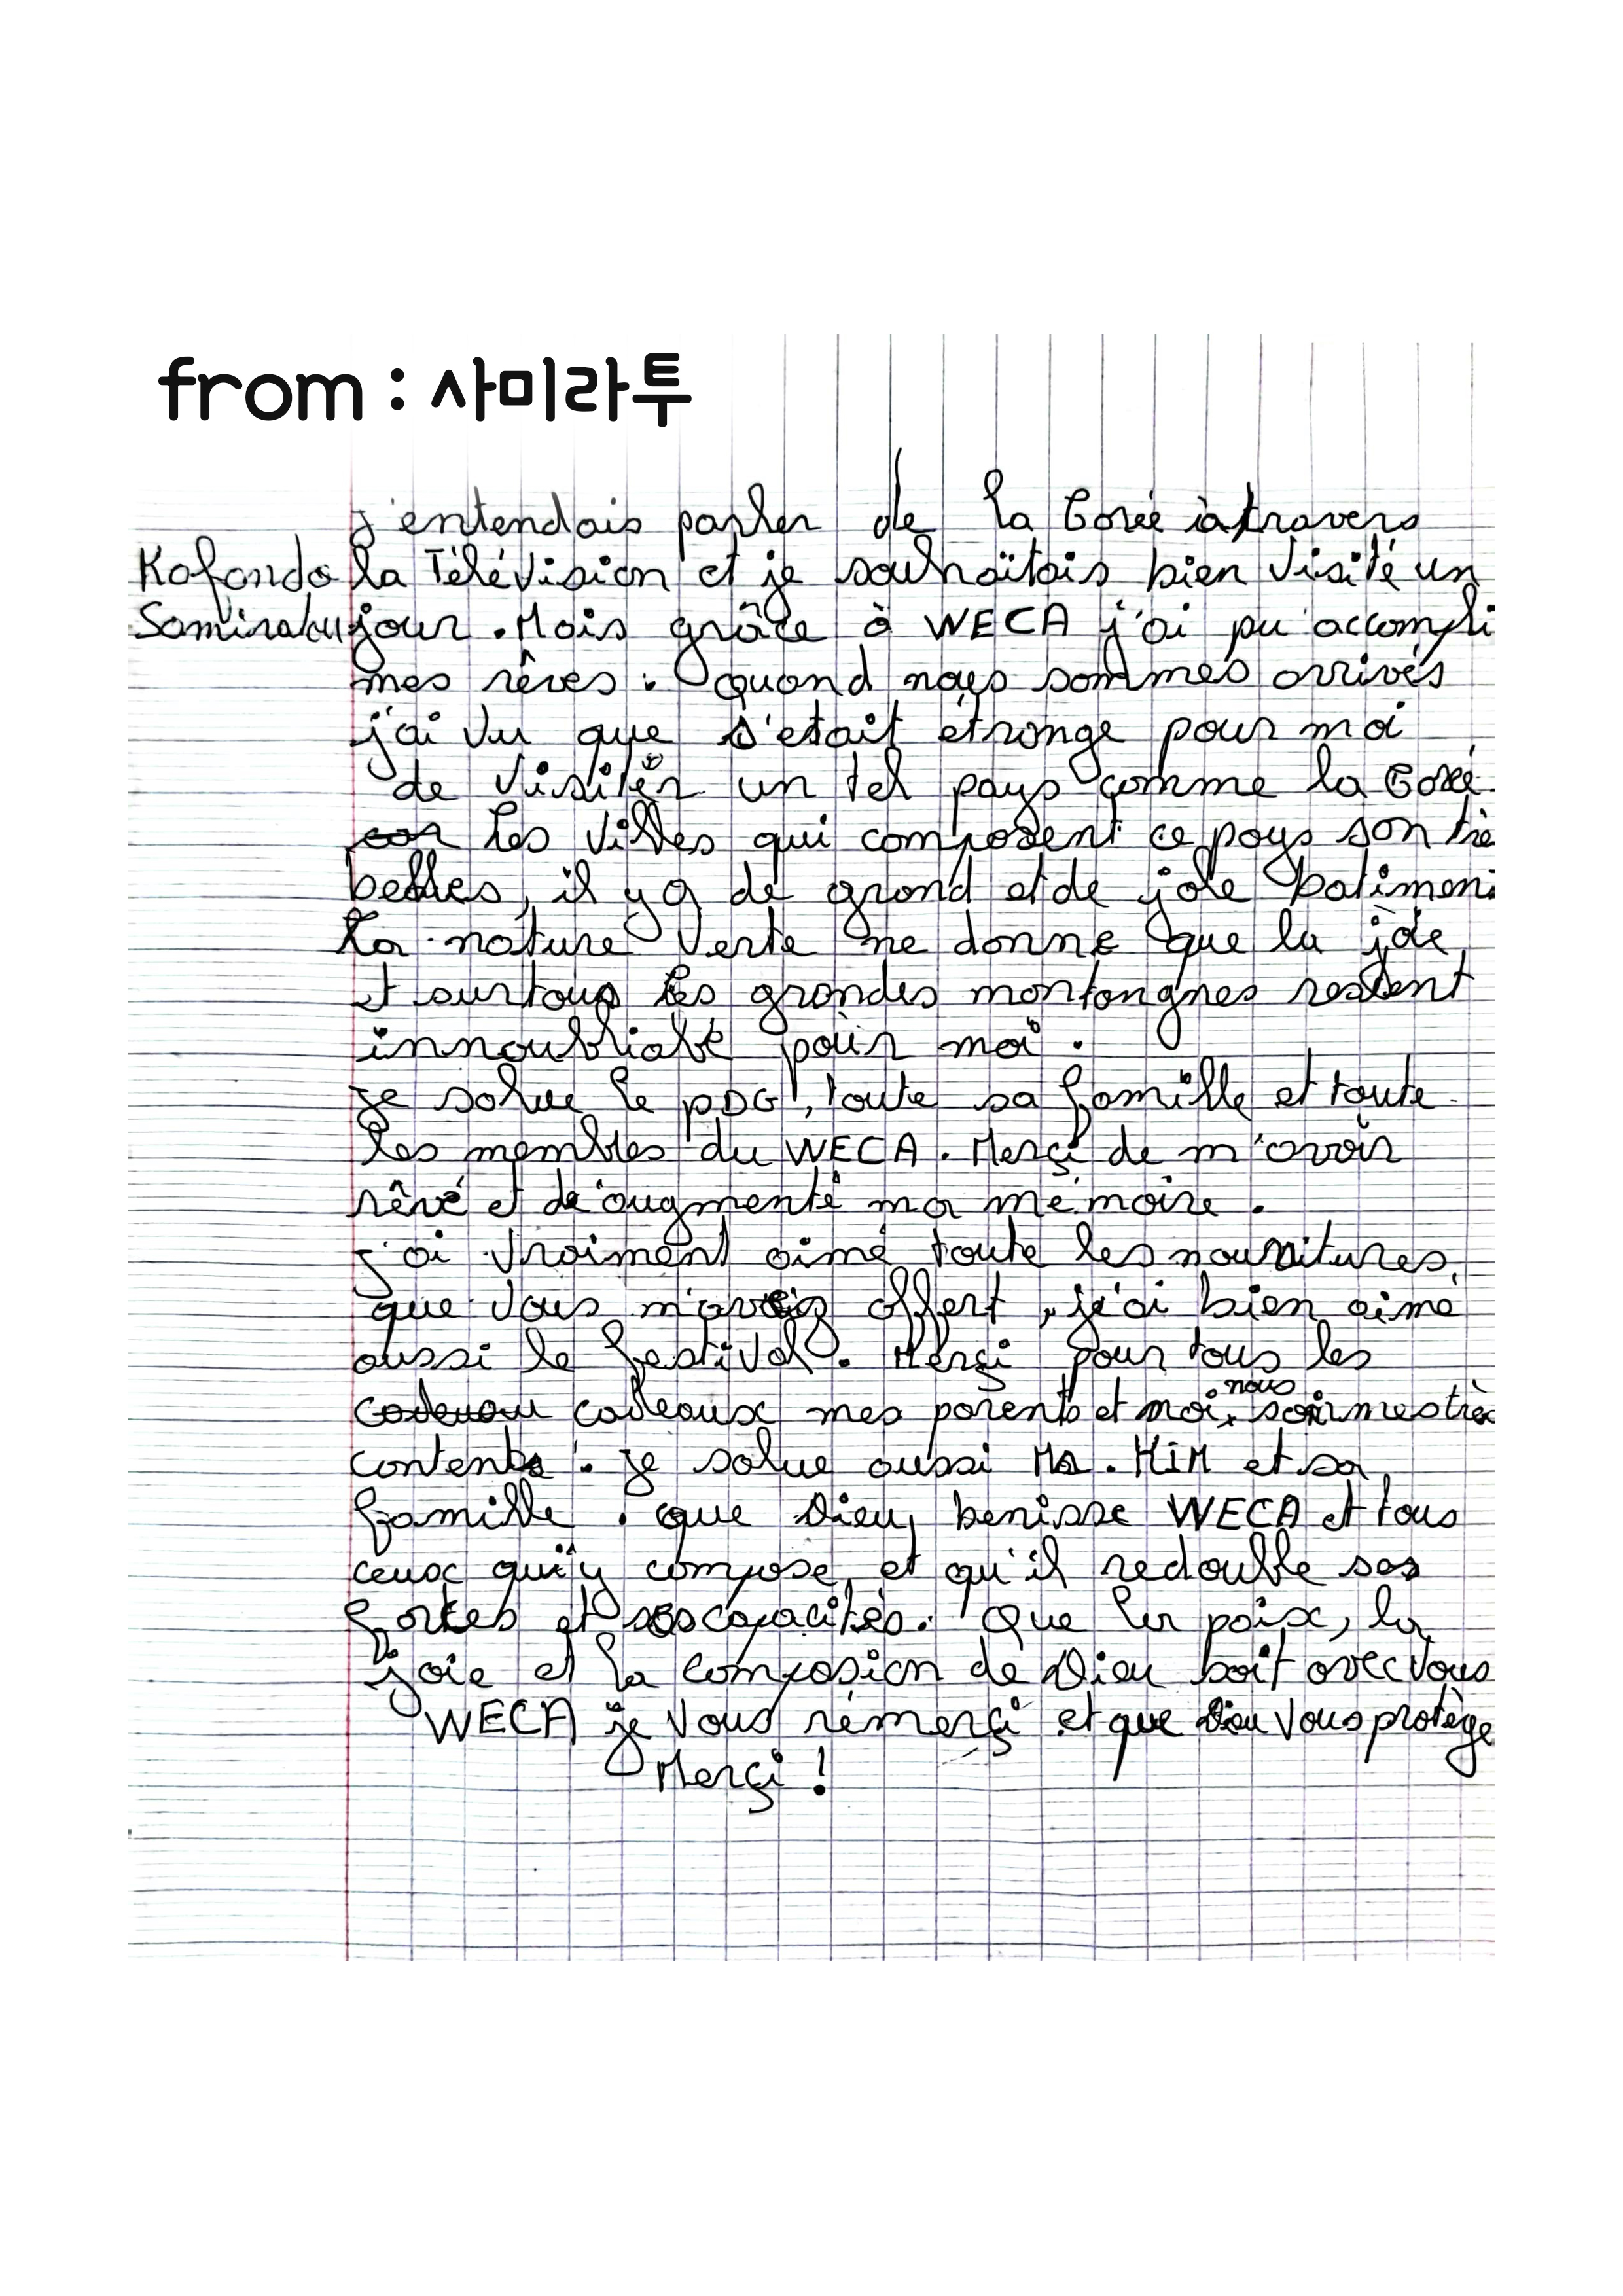 from : 사미라투
j'entendais parler de la Corée à travers
Kafando la Télévision et je souhaitais bien visité un
Samiratou jour. Mais grâce à WECA j'ai pu accompli
mes rêves. quand nous sommes arrivés
j'ai vu que s'etait étrange pour moi
de visiter un tel pays comme la Corée.
Les villes qui composent ce pays son trè
belles, il y a de grand et de jolie batiment
La nature verte me donne que la joie
et surtous les grandes montangnes restent
innoubliable pour moi.
je salue le PDG, toute sa famille et toute
les membres du WECA. Merçi de m'avoir
rêvé et de augmenté ma mémoire.
j'ai vraiment aimé toute les nourritures
que vous m'avez offert, j'ai bien aimé
aussi le festival. Merçi pour tous les
cadeaux mes parents et moi, nous sommes très
contents. je salue aussi Mr. KIM et sa
famille. que Dieu benisse WECA et tous
ceux qui y compose, et qu'il redouble ses
forces et ses capacités. Que la paix, la
joie et la compasion de Dieu soit avec vous
WECA je vous remerçi et que Dieu vous protège
Merçi !